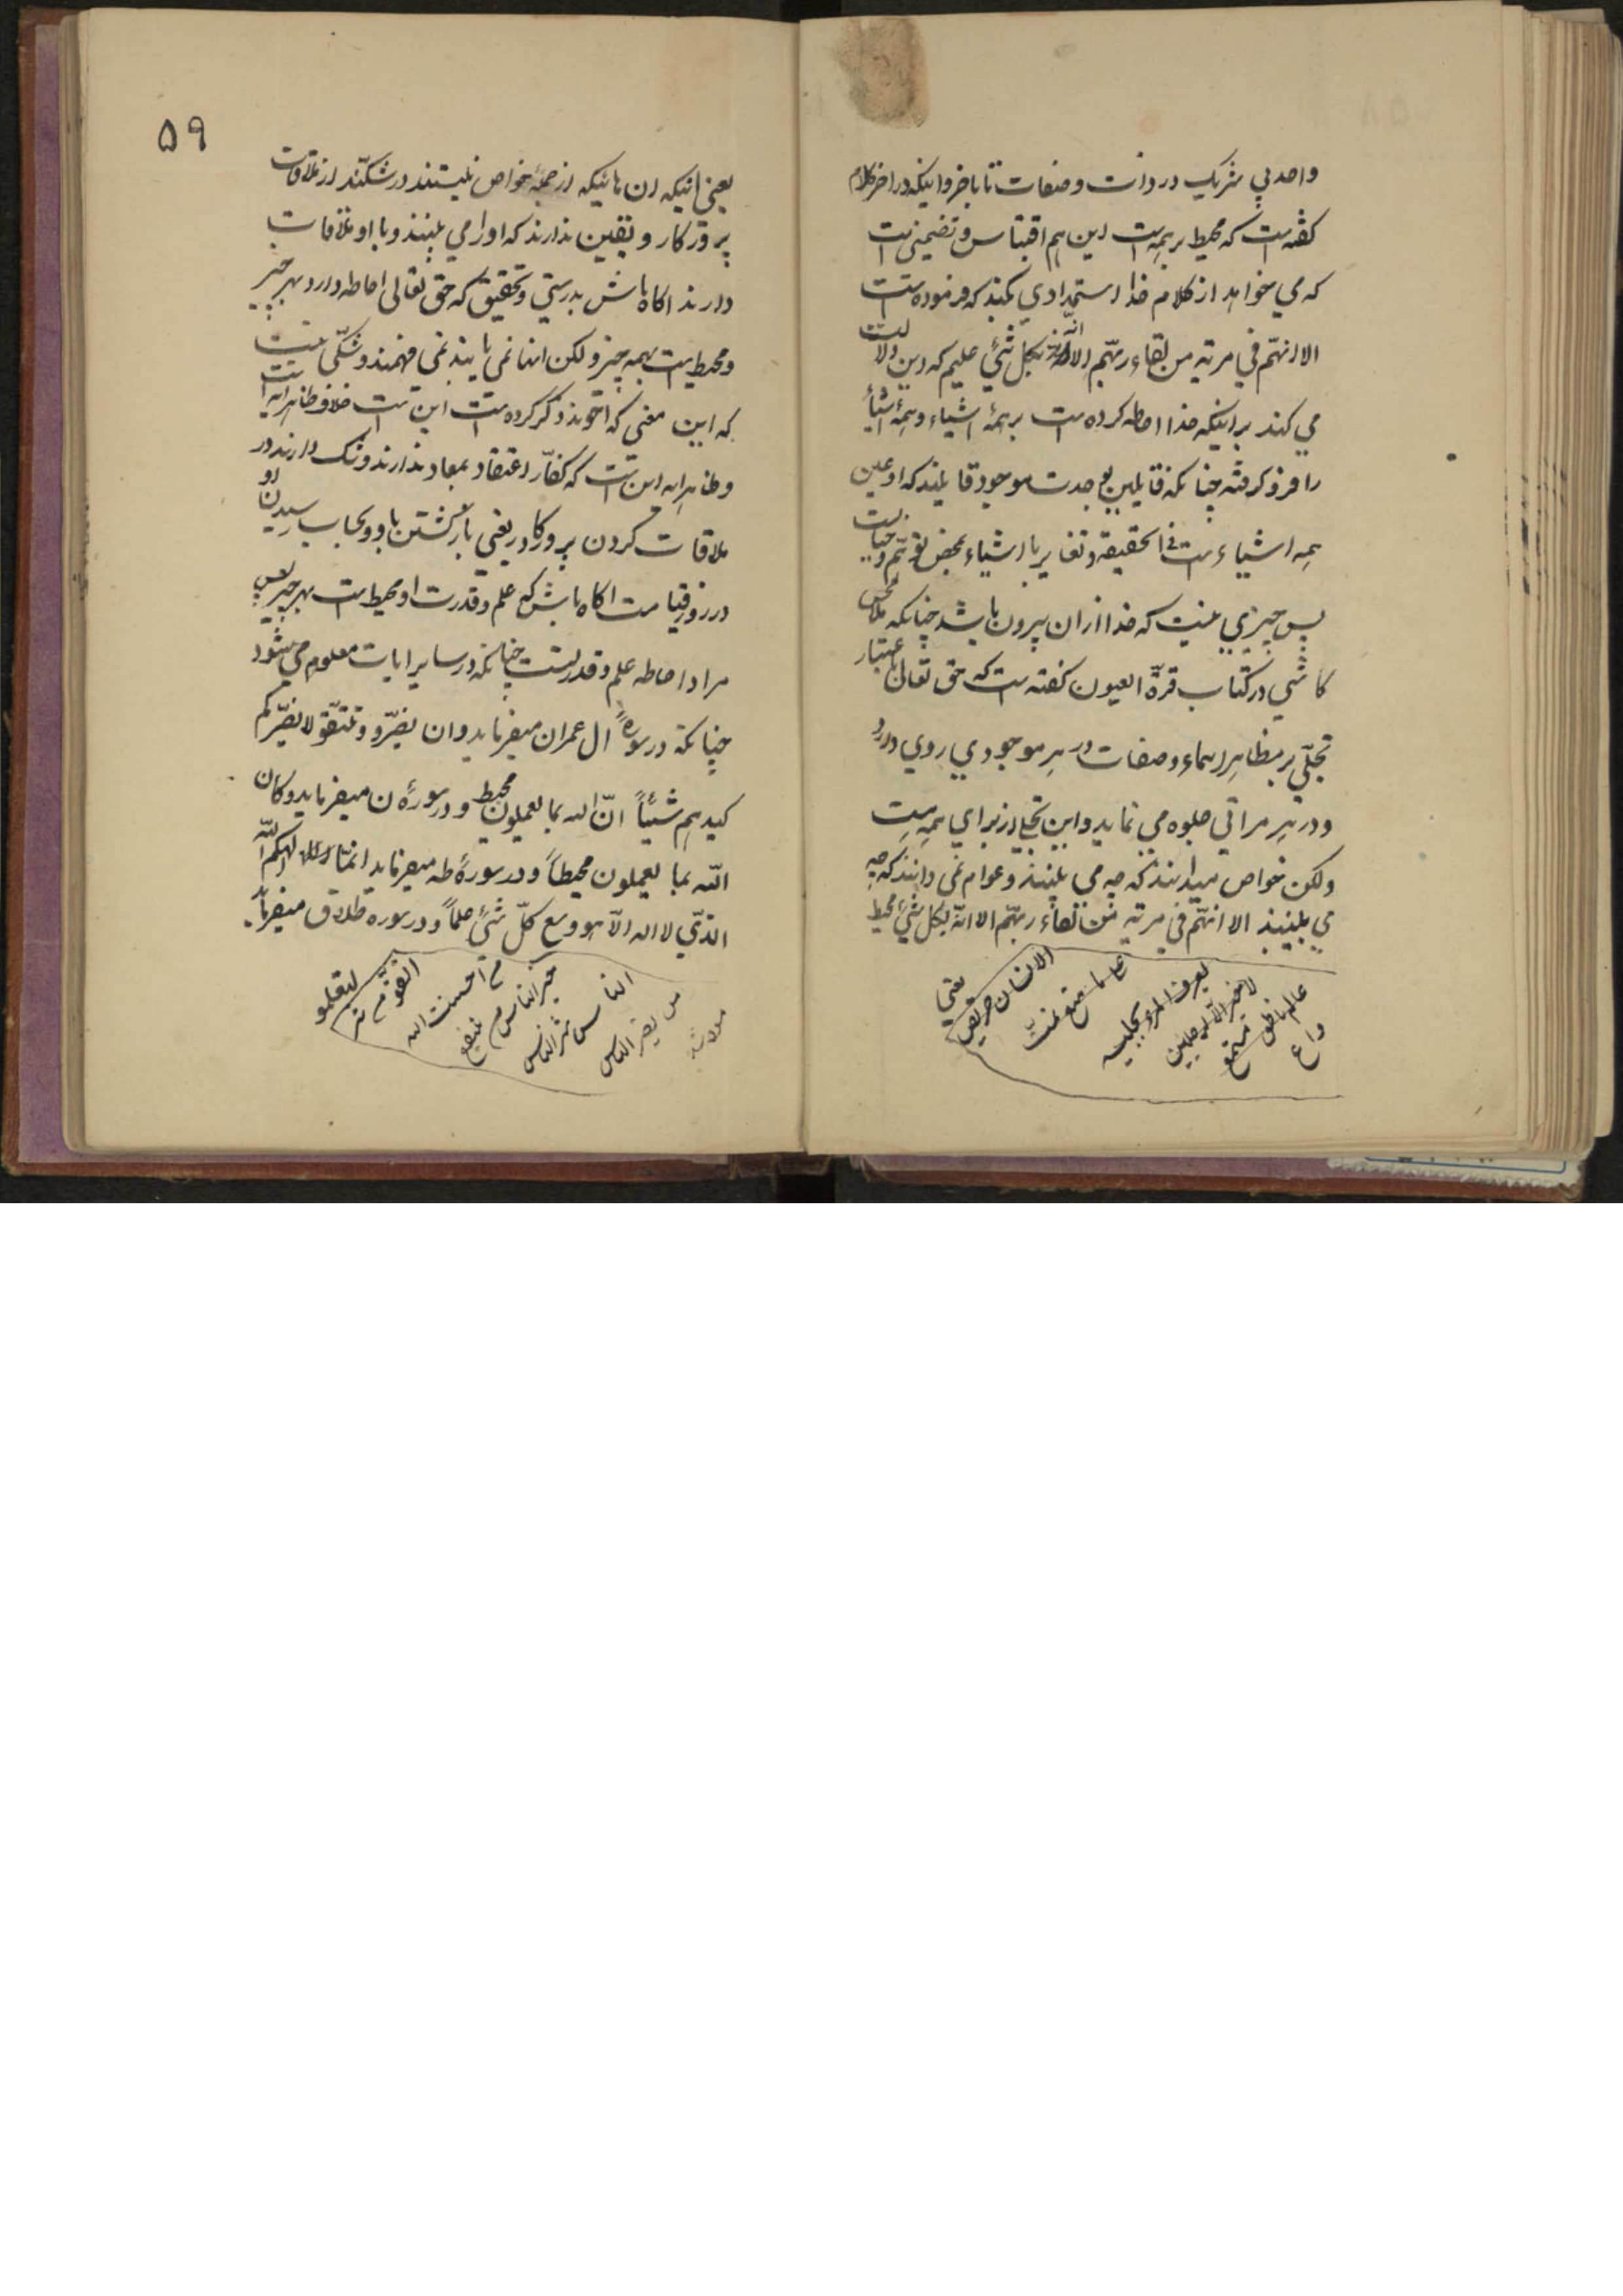 واحد بی شریک در ذات و صفات تا باخر و اینکه در اخر کلام
کفته است که محیط بر همه است این هم اقتباس و تضمینی است
که می خواهد از کلام خدا استمدادی بکند که فرموده است
الا انهّم فی مریة من لقاء ربّهم الا انّه بکل شئ علیم که این دلالت
می کند بر اینکه خدا احاطه کرده است بر همهٔ اشیاء و همهٔ اشیا
را فرو کرفته چنانکه قایلین بوحدت موجود قایلند که او عین
همه اشیاء است فی الحقیقة و تغایر با اشیاء بمحض توهّم و خیالست
پس چیزی نیست که خدا از ان بیرون باشد چنانکه ملا محسن
کاشی در کتاب قرّة العیون کفته است که حق تعالی باعتبار
تجلّی بر مظاهر اسماء و صفات در هر موجودی روی دارد
و در هر مراتی جلوه می نماید و این تجلی از برای همه هست
ولکن خواص میدانند که چه می بینند و عوام نمی دانند که چه
می بینند الا انهّم فی مریة من لقاء ربّهم الا انّه بکل شئ محیط
یعنی
الانسان حریص
علی ما منع
یعرف المرء بجلیسه
لا خیر الا لرجلین
عالم ناطق
مستمع
واع
۵۹
یعنی اینکه ان هائیکه از جملهٔ خواص نیستند در شکّند از ملاقات
پروردکار و یقین ندارند که او را می بینند و با او ملاقات
دارند اکاه باش بدرستی و تحقیق که حق تعالی احاطه دارد بهر چیز
و محیط است بهمه چیز ولکن اینها نمی یابند نمی فهمند و شکّی نیست
که این معنی که اخوند ذکر کرده است این است خلاف ظاهر ایه است
و ظاهر ایه این است که کفّار اعتقاد بمعاد ندارند و شک دارند در
ملاقات کردن پروردکار یعنی بازکشتن باو و بحساب رسیدن او
در روز قیامت اکاه باش که علم و قدرت او محیط است بهر چیز پس
مراد احاطه علم و قدرتست چنانکه در سایر ایات معلوم می شود
چنانکه در سورهٔ ال عمران میفرماید و ان تصبروا و تتّقوا لا یضرّکم
کیدهم شیئاً انّ الله بما یعملون محیط و در سورهٔ ن میفرماید و کان
الله بما یعملون محیطاً و در سورهٔ طه میفرماید انمّا الهکم اللّه
الذّی لا اله الاّ هو وسع کلّ شئ علماً و در سوره طلاق میفرماید
لتعلموا
احسنت الله
خیر الناس من ینفع
الناس شر الناس
من یضر الناس